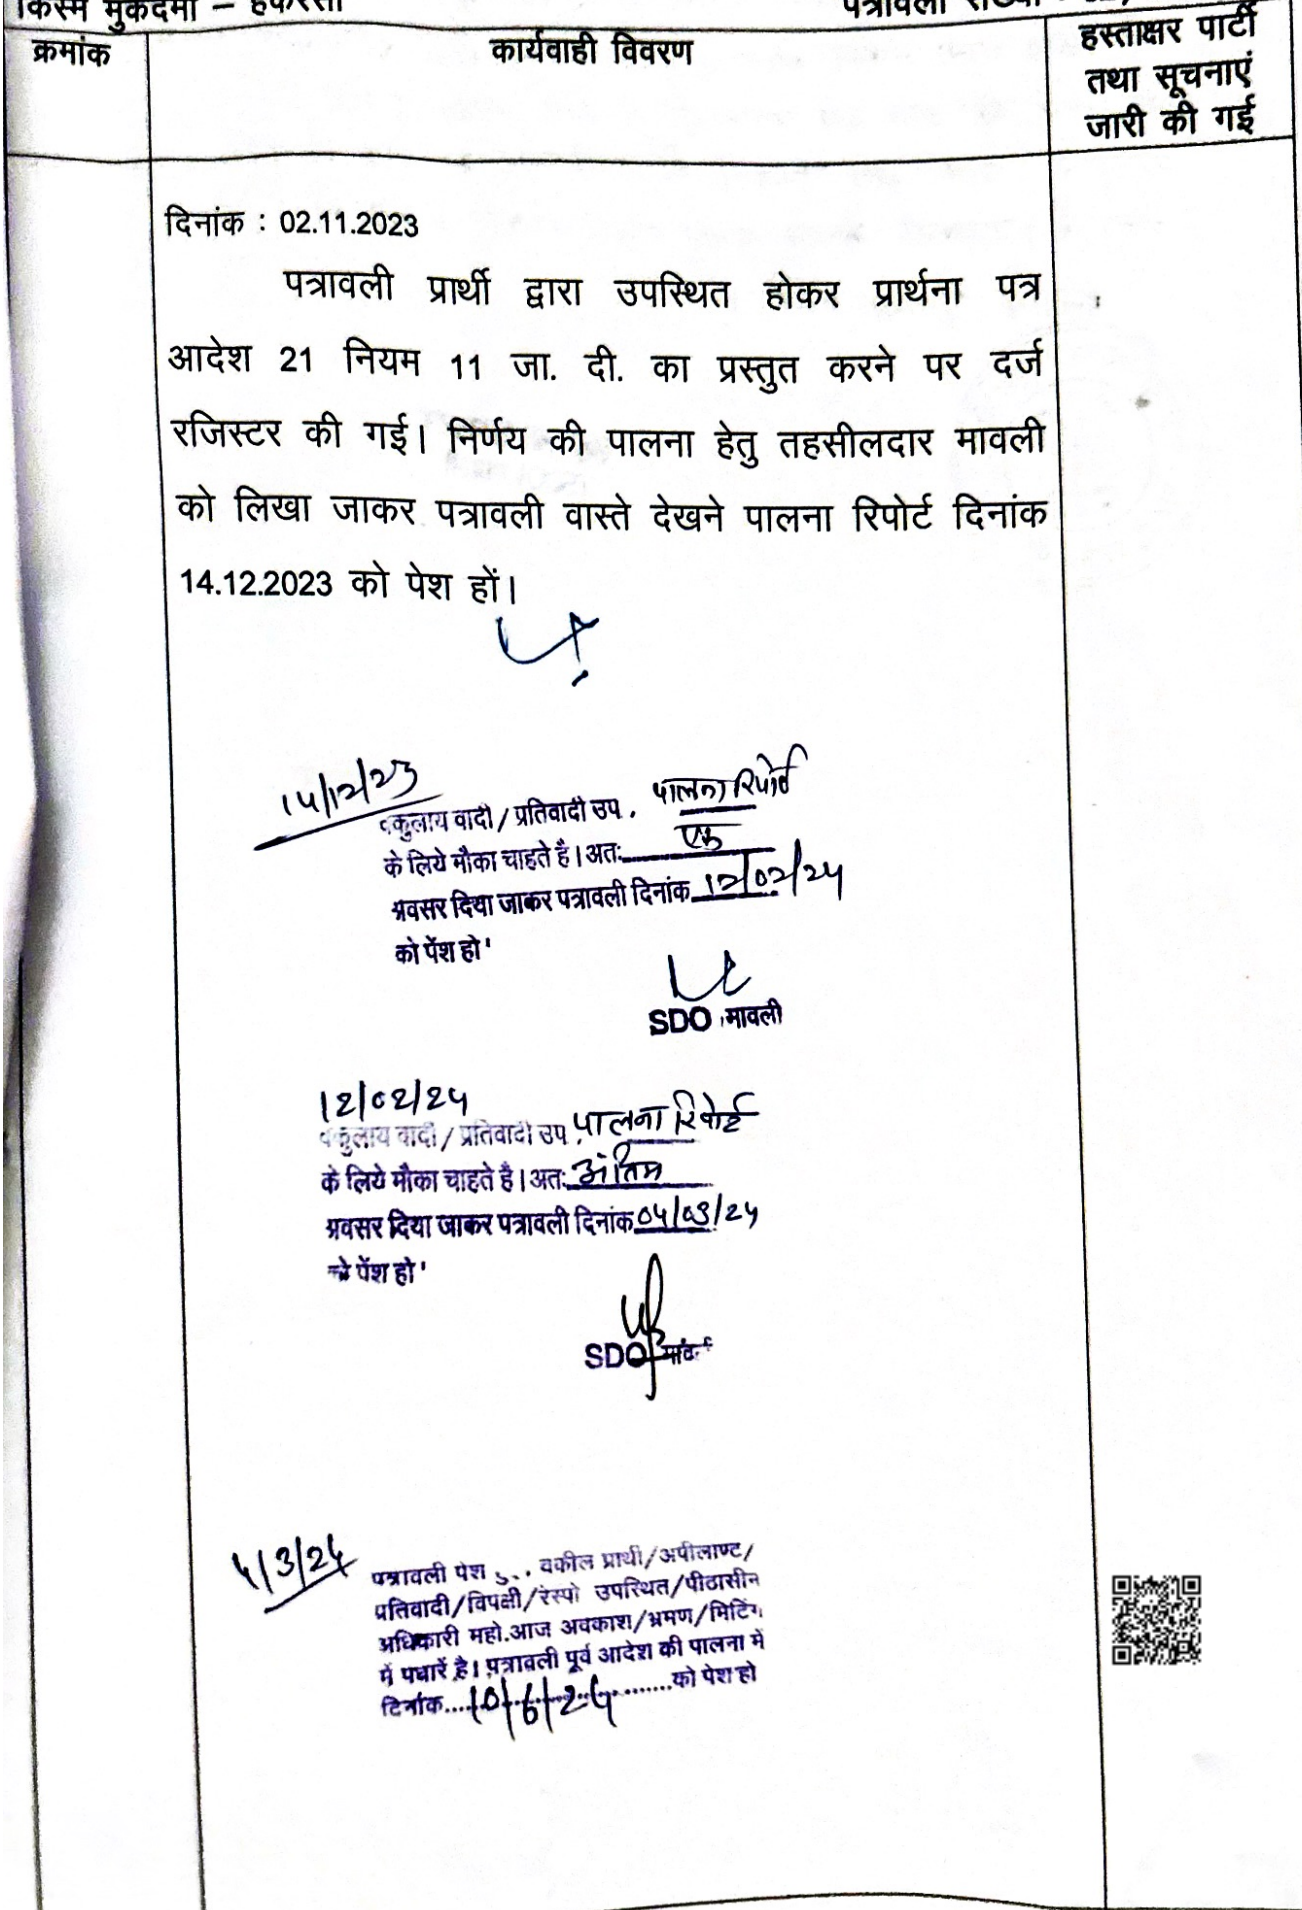 किस्म मुकदमा – हकरसी
पत्रावली संख्या
क्रमांक
कार्यवाही विवरण
हस्ताक्षर पार्टी
तथा सूचनाएं
जारी की गई
दिनांक : 02.11.2023
पत्रावली प्रार्थी द्वारा उपस्थित होकर प्रार्थना पत्र
आदेश 21 नियम 11 जा. दी. का प्रस्तुत करने पर दर्ज
रजिस्टर की गई। निर्णय की पालना हेतु तहसीलदार मावली
को लिखा जाकर पत्रावली वास्ते देखने पालना रिपोर्ट दिनांक
14.12.2023 को पेश हों।
14/12/23
वकुलाय वादी / प्रतिवादी उप. पालना रिपोर्ट
के लिये मौका चाहते है। अतः एक
अवसर दिया जाकर पत्रावली दिनांक 12/02/24
को पेंश हो'
SDO मावली
12/02/24
वकुलाय वादी / प्रतिवादी उप. पालना रिपोर्ट
के लिये मौका चाहते है। अतः अंतिम
अवसर दिया जाकर पत्रावली दिनांक 04/03/24
को पेंश हो'
SDO
4/3/24
पत्रावली पेश वकील प्रार्थी/अपीलाण्ट/
प्रतिवादी/विपक्षी/रेस्पो उपस्थित/पीठासीन
अधिकारी महो.आज अवकाश/भ्रमण/मिटिंग
में पधारें है। पत्रावली पूर्व आदेश की पालना में
दिनांक....10/6/24........को पेश हो